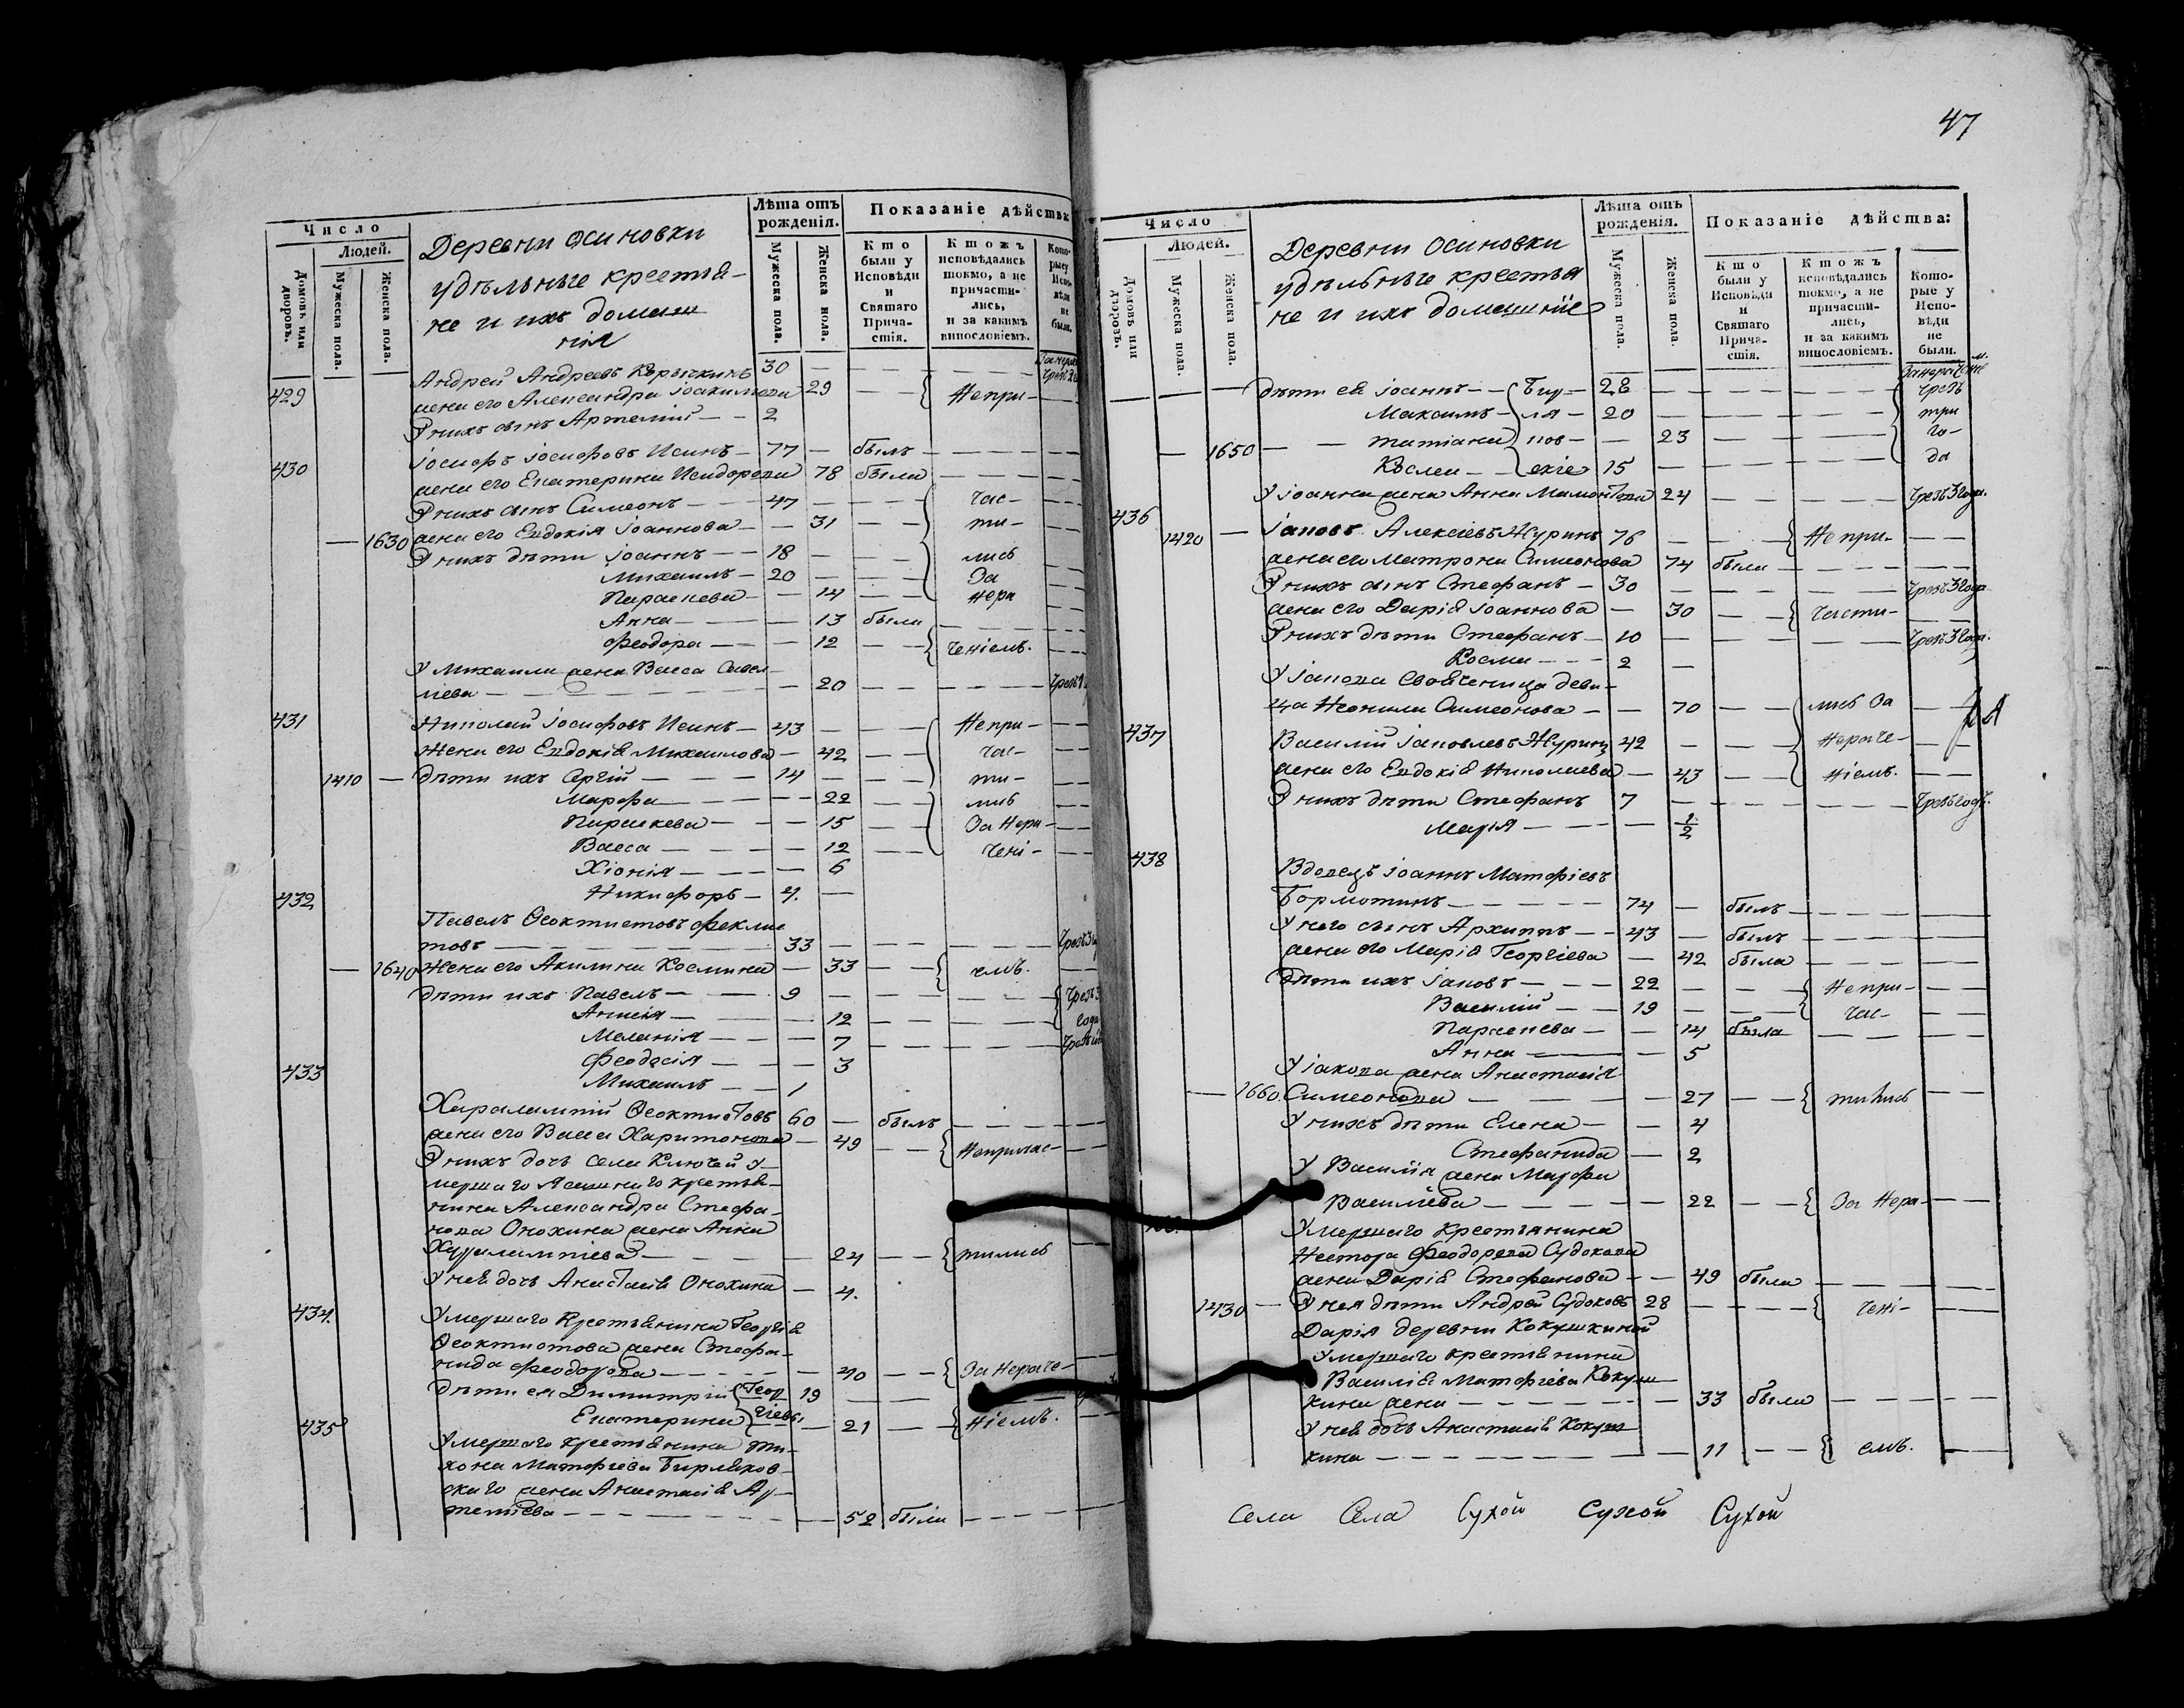 Число
Людей.
Домовъ или дворовъ.
Мужеска пола.
Женска пола.
Деревни Осиновки
удѣльные крестья-
не и ихъ домаш
нія
Лѣта отъ рожденія.
Мужеска пола.
Женска пола.
Показаніе дѣйства:
Кто были у Исповѣди и Святаго Причастія.
Ктожъ исповѣдались токмо, а не причастились, и за какимъ винословіемъ.
Которые у Исповѣди не были.
Андрей Андреевъ 30
429 жена его Александра Іоакимова 29 — — Непри-
У нихъ сынъ Артемий — — 2
430 Іосифъ Іосифовъ Исинъ — 77 — былъ — — —
жена его Екатерина Исидорова 78 была — — —
У нихъ сынъ Симеонъ — — 47 — — — час-
— 1630 жена его Евдокія Іоаннова — — 31 — — ти-
У нихъ дѣти Іоаннъ — — 18 — — — лись
Михаилъ — 20 — — — За
Параскева — — 14 — — нера
Анна — — — 13 была — — —
Феодора — — — 12 — — ченіемъ.
У Михаила жена Васса Савел
иева — — — 20 — — — —
431 Николай Іосифовъ Исинъ — 43 — — — Непри-
Жена его Евдокія Михаилова — 42 — — час-
1410 — дѣти ихъ Сергій — — — 14 — — — ти-
Марфа — — — — 22 — — лись
Параскева — — — 15 — — За Нера-
Васса — — — — 12 — — чені-
Хіонія — — — — 6
432 Никифоръ — 4. —
Павелъ Ѳеоктистовъ Феклис
товъ — — — 33 — — — — —
— 1640 Жена его Акилина Космина — 33 — — емъ.
дѣти ихъ Павелъ — — 9 — — — — —
Анисія — — — — 12 — — — —
Меланія — — — 7 — — — —
433 Феодосія — — — 3
Михаилъ — — 1
Харалампій Ѳеоктистовъ 60 — былъ — — —
жена его Васса Харитонова — 49 — — Непричас-
У нихъ дочь села Ключей у-
мершаго крестья-
нина Александра Стефа-
нова Онохина жена Анна
Харалампіева — — — — 24 — — тились
У нея дочь Анастасія Онохина — 4.
434. Умершаго Крестьянина Георгія
Ѳеоктистова жена Стефа-
нида Феодорова — — — — 40 — — За Нераче-
дѣти ея Димитрій Геор 19 — — — —
435 Екатерина гіевы — 21 — — ніемъ.
Умершаго крестьянина Ти-
хона Матфіева Бирляков-
скаго жена Анастасія Ар-
темиева — — — — 52 была — — —
47
Число
Людей.
Домовъ или дворовъ.
Мужеска пола.
Женска пола.
Деревни Осиновки
удѣльные крестья
не и ихъ домашніе
Лѣта отъ рожденія.
Мужеска пола.
Женска пола.
Показаніе дѣйства:
Кто были у Исповѣди и Святаго Причастія.
Ктожъ исповѣдались токмо, а не причастились, и за какимъ винословіемъ.
Которые у Исповѣди не были.
— — дѣти ея Іоаннъ — — Бир — 28 — — — — — чрезъ
Максимъ — ля — 20 — — — — — три
— 1650 — — Татіана ков — — 23 — — — — го-
Косма — — скіе 15 — — — — — да
У Іоанна жена Анна Мамонтова 24 — — — — Чрезъ 3 года.
436 1420 — Іаковъ Алексіевъ Журинъ 76 — — — Непри- — —
жена его Матрона Симеонова 74 была — — — —
У нихъ сынъ Стефанъ — 30 — — — — — Чрезъ 3 года
жена его Дарія Іоаннова — 30 — — Части- — —
У нихъ дѣти Стефанъ — 10 — — — — — Чрезъ 3 года.
Косма — — — 2 —
У Іакова Своячиница деви-
ца Неонила Симеонова — — 70 — — лись За — —
437 Василій Іаковлевъ Журинъ 42 — — — Нераче- — —
жена его Евдокія Николаева — 43 — — ніемъ. — —
У нихъ дѣти Стефанъ 7 — — — — — Чрезъ годъ.
Марія — — — — 1/2
438 Вдовецъ Іоаннъ Матфіевъ
Бормотинъ — — — — 74 — былъ — — — —
У него сынъ Архиппъ — — 43 — былъ — — — —
жена его Марія Георгіева — 42 была — — — —
Дѣти ихъ Іаковъ — — — 22 — — — Непри- — —
Василій — — 19 — — — Час- — —
Параскева — — 14 была — — — —
Анна — — — 5
У Іакова жена Анастасія
— 1660. Симеонова — — — — 27 — — тились — —
У нихъ дѣти Елена — — 4
Стефанида — 2
У Василія жена Марфа
Василіева — — — — — 22 — — За Нера- — —
Умершаго Крестьянина
Нестора Феодорова Судокова
жена Дарія Стефанова — — 49 была — — — —
1430 — У нея дѣти Андрей Судоковъ 28 — — — — чені- — —
Дарія деревни Кокушкиной
Умершаго крестьянина
Василія Матфіева Кокуш-
кина жена — — — — — — 33 была — — — —
У нея дочь Анастасія Кокуш
кина — — — — — — — 11 — — емъ. —
Села Села Сухой Сухой Сухой